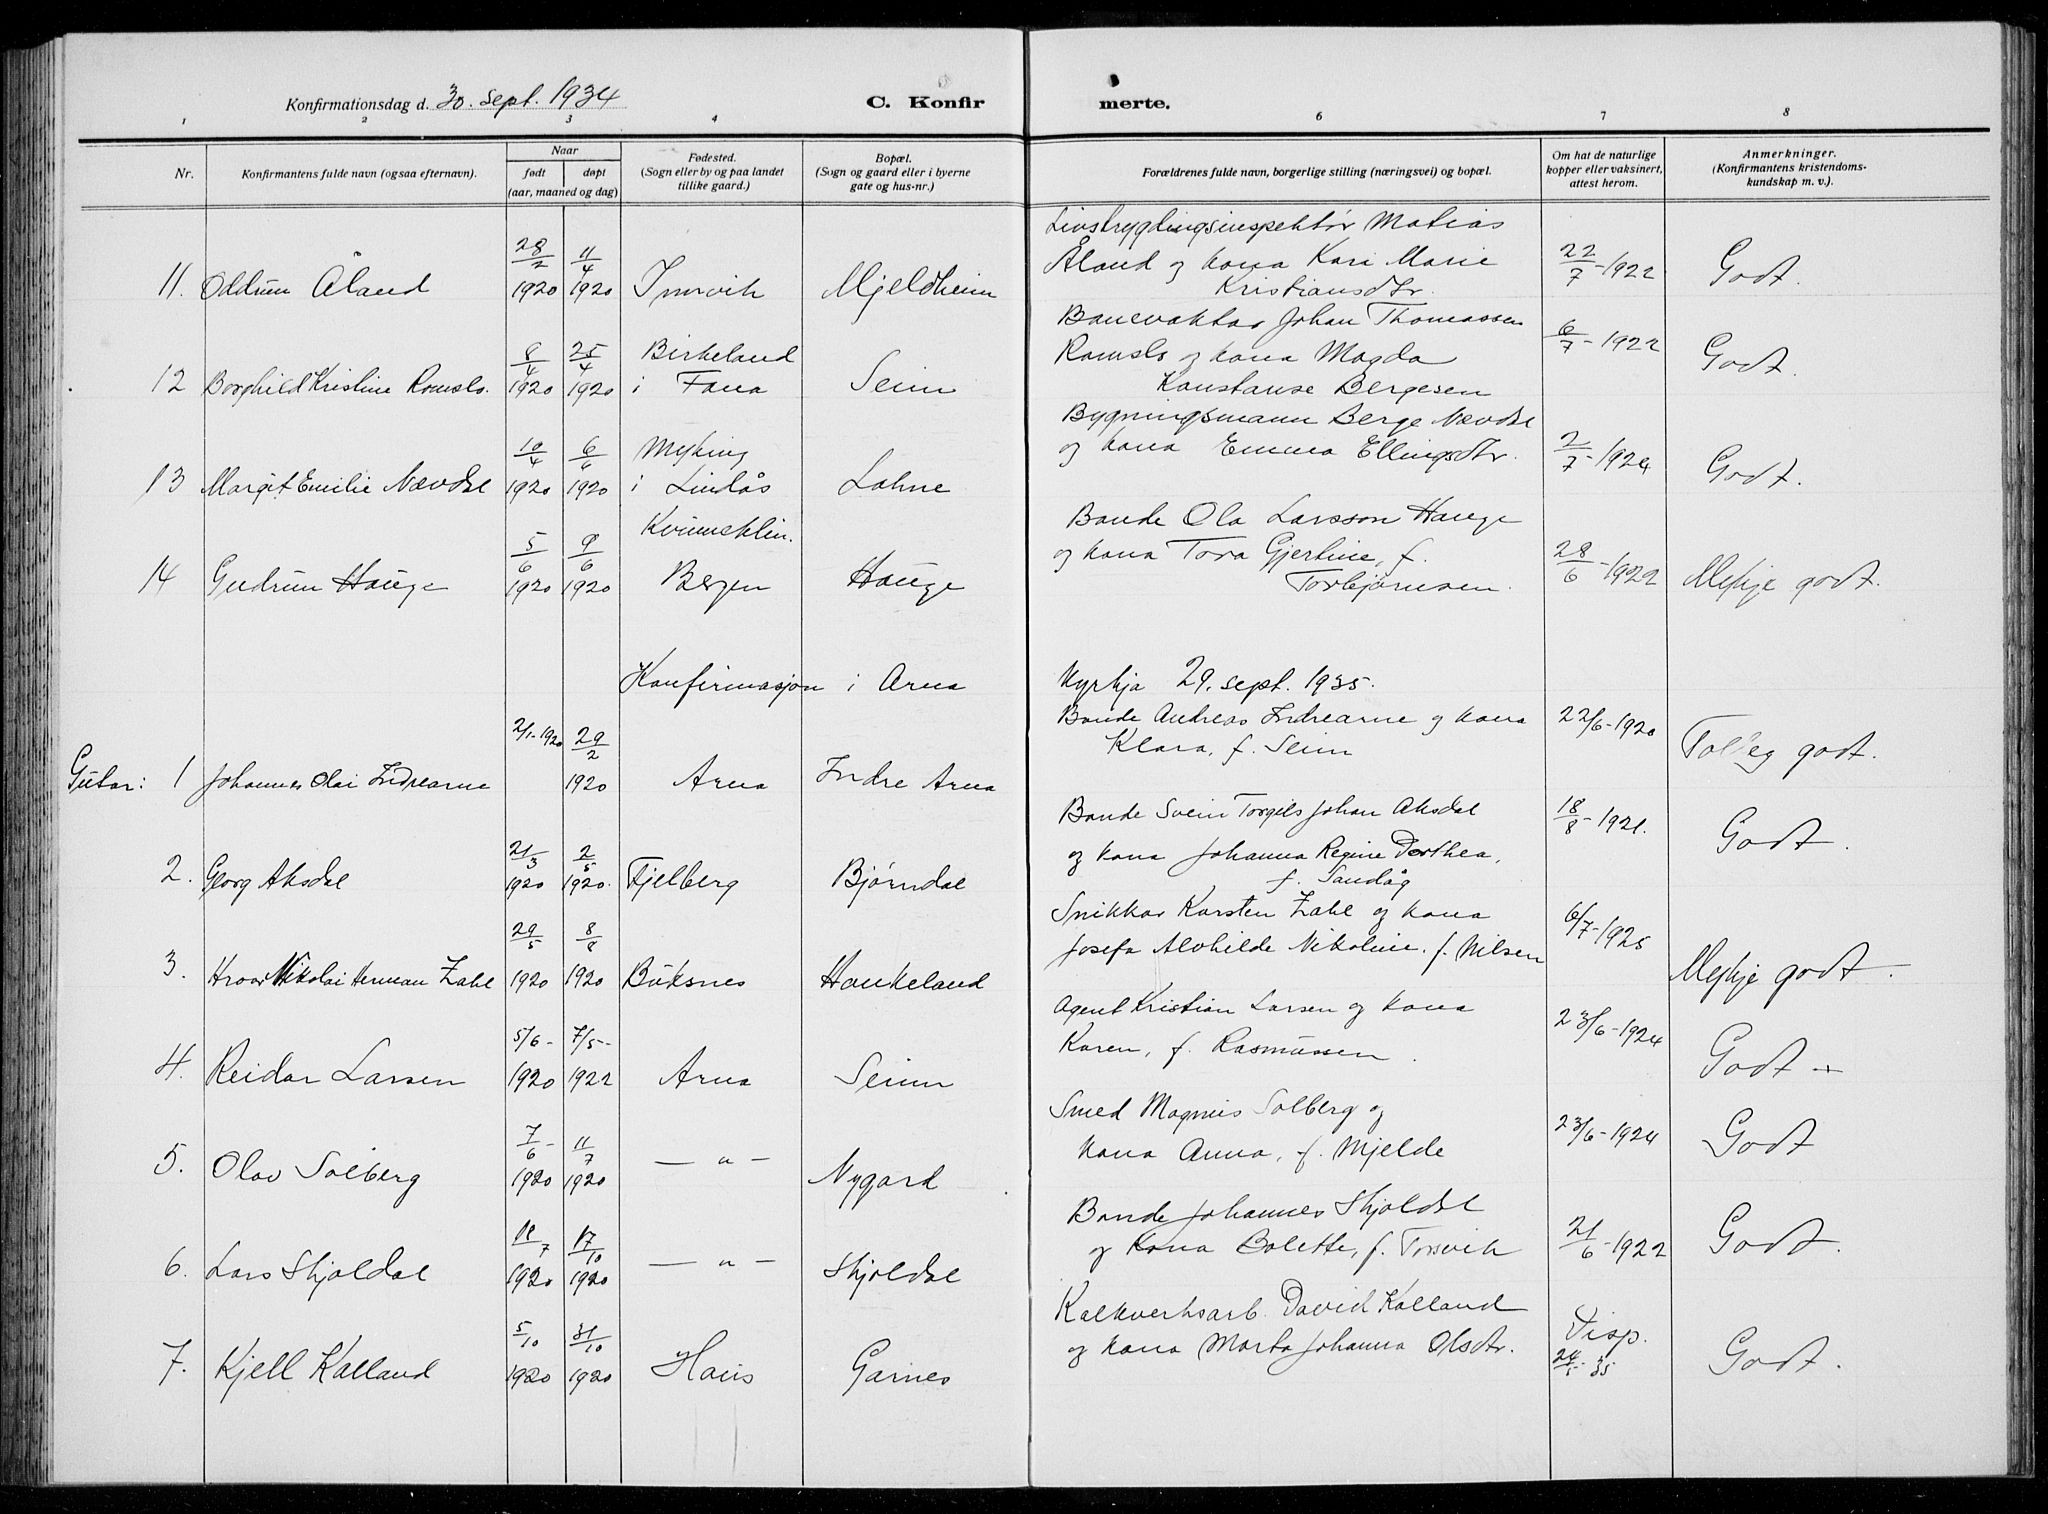 Konfirmationsdag d. 30. sept. 1934 C. Konfir merte.
1 2 3 4 6 7 8
Nr. Konfirmantens fulde navn (ogsaa efternavn). Naar født døpt (aar, maaned og dag) Fødested. (Sogn eller by og paa landet tillike gaard.) Bopæl. (Sogn og gaard eller i byerne gate og hus-nr.) Forældrenes fulde navn, borgerlige stilling (næringsvei) og bopæl. Om hat de naturlige kopper eller vaksinert, attest herom. Anmerkninger. (Konfirmantens kristendoms-kundskap m. v.).
11. Oddrun Åland 28/2 1920 11/4 1920 Innvik Mjeldheim Livstryglingsinspektør Matias Åland og kona Kari Marie Kristiansdtr. 22/7-1922 Godt.
12 Borghild Kristine Romslo. 8/4 1920 25/4 1920 Birkeland i Fana Seim Banevaktar Johan Thomassen Romslo og kona Magda Konstanse Bergesen 6/7-1922 Godt.
13 Margit Emilie Nævdal 10/4 1920 6/6 1920 Myking i Lindås Lohne Bygningsmann Berge Nævdal og kona Emma Ellingsdtr. 2/7-1924 Godt.
14 Gudrun Hauge 5/6 1920 9/6 1920 Kvinneklin. Bergen Hauge Bonde Ola Larsson Hauge og kona Tora Gjertine, f. Torbjørnsen. 28/6-1922 Mykje godt.
Konfirmasjon i Arna Kyrkja 29. sept. 1935.
Gutar: 1 Johannes Olai Indrearne 2/1-1920 29/2 1920 Arna Indre Arna Bonde Andreas Indrearne og kona Klara, f. Seim 22/6-1920 Tolleg godt.
2. Georg Aksdal 21/3 1920 2/5 1920. Fjelberg Bjørndal Bonde Svein Torgils Johan Aksdal og kona Johanna Regine Dorthea, f. Sandåg 18/8-1921. Godt.
3. Hroar Nikolai Herman Zahl 29/5 1920 8/8 1920 Buksnes Haukeland Snikkar Karsten Zahl og kona Josefa Alvhilde Nikoline. f. Nilsen 6/7-1925 Mykje godt.
4. Reidar Larsen 5/6-1920 7/5-1922 Arna Seim Agent Kristian Larsen og kona Karen, f. Rasmussen. 23/6-1924 Godt
5. Olav Solberg 7/6-1920 11/7 1920 — " — Nygard Smed Magnus Solberg og kona Anna, f. Mjelde 23/6-1924 Godt
6. Lars Skjoldal 18/7 1920 17/10 1920 — " — Skjoldal Bonde Johannes Skjoldal og kona Bolette, f. Torsvik 21/6-1922 Godt.
7. Kjell Kalland 5/10 1920 31/10 1920 Haus Garnes Kalkverksarb. David Kalland og kona Marta Johanna Olsdtr. Disp. 24/5-35 Godt.